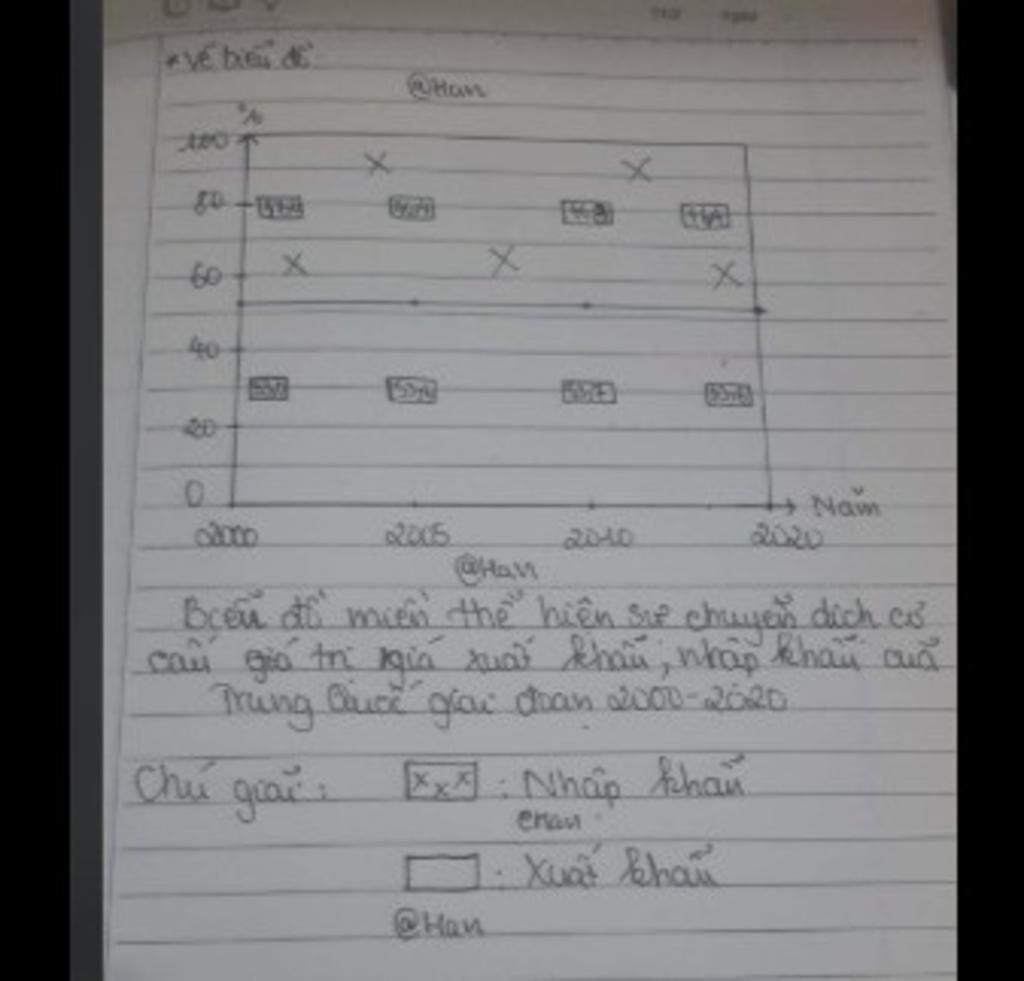 * Vẽ biểu đồ
@Han
%
100
80
60
40
20
0
Năm
2000 2005 2010 2020
@Han
Biểu đồ miền thể hiện sự chuyển dịch cơ
cấu giá trị giá xuất khẩu, nhập khẩu của
Trung Quốc giai đoạn 2000-2020
Chú giải: xxx : Nhập khẩu
@Han
: Xuất khẩu
@Han